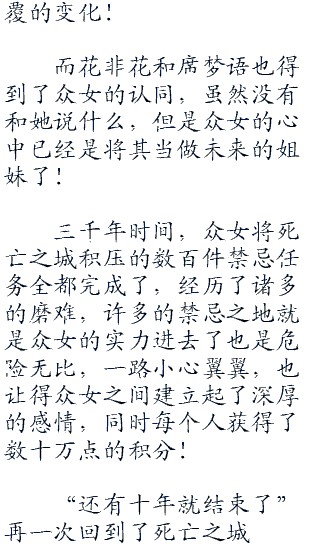 覆的变化！
而花非花和席梦语也得
到了众女的认同，虽然没有
和她说什么，但是众女的心
中已经是将其当做未来的姐
妹了！
三千年时间，众女将死
亡之城积压的数百件禁忌任
务全都完成了，经历了诸多
的磨难，许多的禁忌之地就
是众女的实力进去了也是危
险无比，一路小心翼翼，也
让得众女之间建立起了深厚
的感情，同时每个人获得了
数十万点的积分！
“还有十年就结束了”
再一次回到了死亡之城